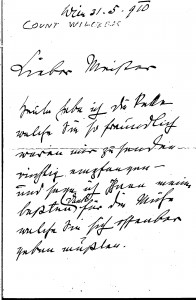 Wien 21-5-910
COUNT WILCZEK
Lieber Meister
Heute habe ich die Kette
welche Sie so freundlich
waren mir zu senden
richtig empfangen –
und sage ich Ihnen meinen
besten Dank für die Mühe
welche Sie sich offenbar
geben mußten.